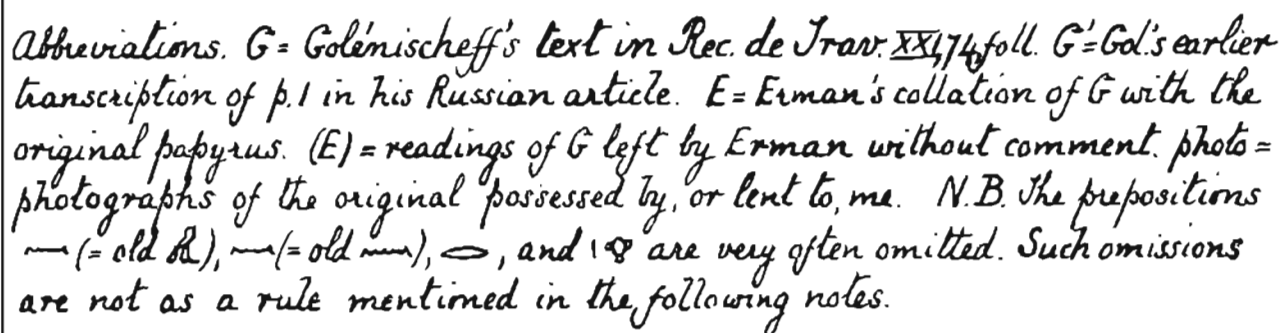 Abbreviations. G = Golénischeff's text in Rec. de Trav. XXI, 74, foll. G' = Gol.'s earlier
transcription of p. 1 in his Russian article. E = Erman's collation of G with the
original papyrus. (E) = readings of G left by Erman without comment. photo =
photographs of the original possessed by, or lent to, me. N.B. The prepositions
𓈖 (= old 𓅓), 𓈖 (= old 𓈖), 𓂋, and 𓏤𓁷 are very often omitted. Such omissions
are not as a rule mentioned in the following notes.